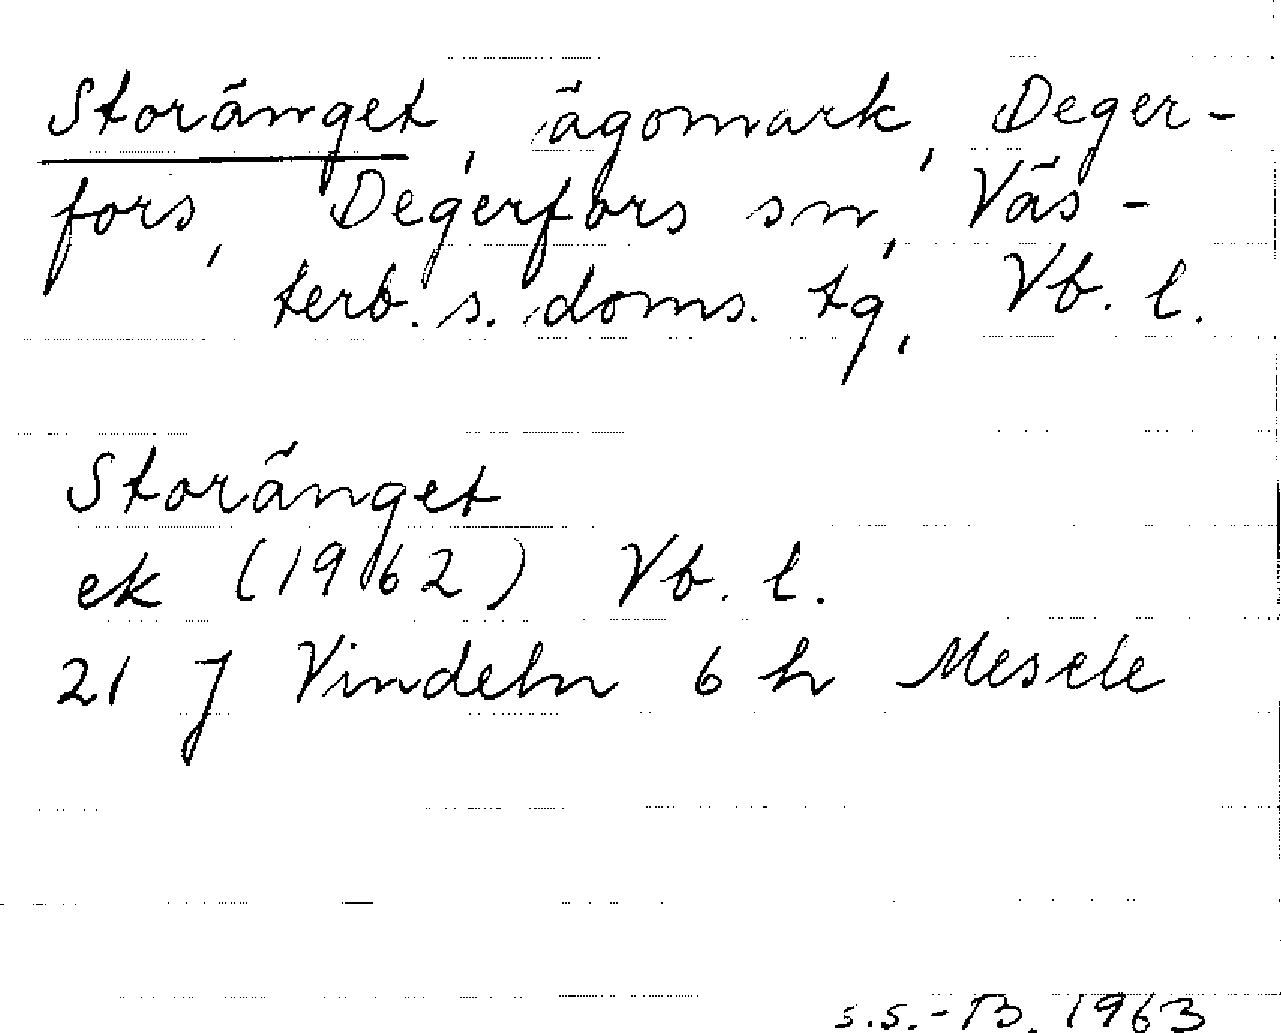 Storänget, ägomark, Deger-
fors, Degerfors sn, Väs-
terb. s. doms. tg, Vb. l.
Storänget
ek (1962) Vb. l.
21 J Vindeln 6 h Mesele
S.S.-B. 1963